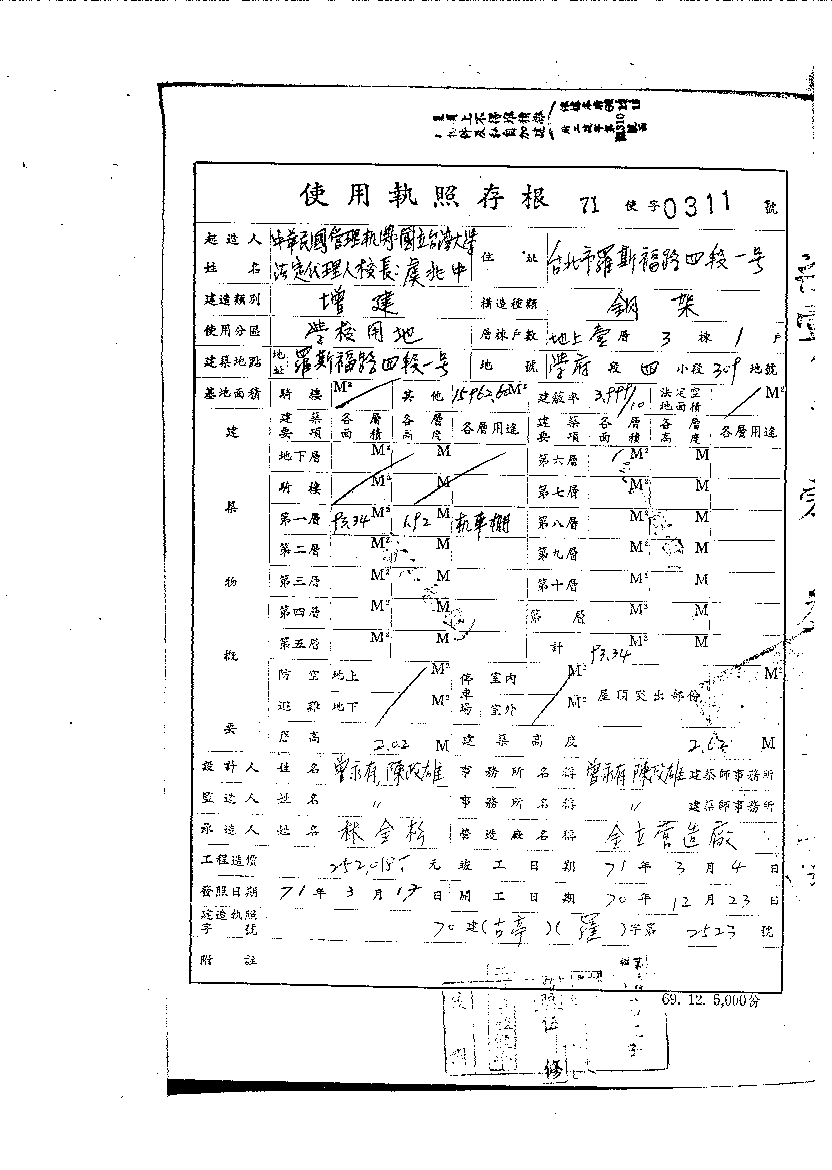 使用執照存根 71 使字0311號
起造人姓名 中華民國管理機關:國立台灣大學 法定代理人校長:虞兆中 住址 台北市羅斯福路四段一号
建造類別 增建 構造種類 鋼架
使用分區 學校用地 層棟戶數 地上壹層 3 棟 1 戶
建築地點 地址 羅斯福路四段一号 地號 學府 段 四 小段 309 地號
基地面積 騎樓 M² 其他 15962.60M² 建蔽率 3.999/10 法定空地面積 M²
建築物概要
建築要項 各層面積 各層高度 各層用途 建築要項 各層面積 各層高度 各層用途
地下層 M² M 第六層 M² M
騎樓 M² M 第七層 M² M
第一層 93.34 M² 1.92 M 机車棚 第八層 M² M
第二層 M² M 第九層 M² M
第三層 M² M 第十層 M² M
第四層 M² M 第 層 M² M
第五層 M² M 計 93.34 M² M
防空避難 地上 M² 停車場 室內 M² 屋頂突出部份 M²
地下 M² 室外 M²
簷高 2.02 M 建築高度 M
設計人 姓名 曾永有,陳政雄 事務所名稱 曾永有,陳政雄 建築師事務所
監造人 姓名 〃 事務所名稱 〃 建築師事務所
承造人 姓名 林金杉 營造廠名稱 金立營造廠
工程造價 元 竣工日期 71 年 3 月 4 日
發照日期 71 年 3 月 17 日 開工日期 70 年 12 月 23 日
建造執照字號 70 建(古亭)(羅)字第 2523 號
附註
69. 12. 5,000份